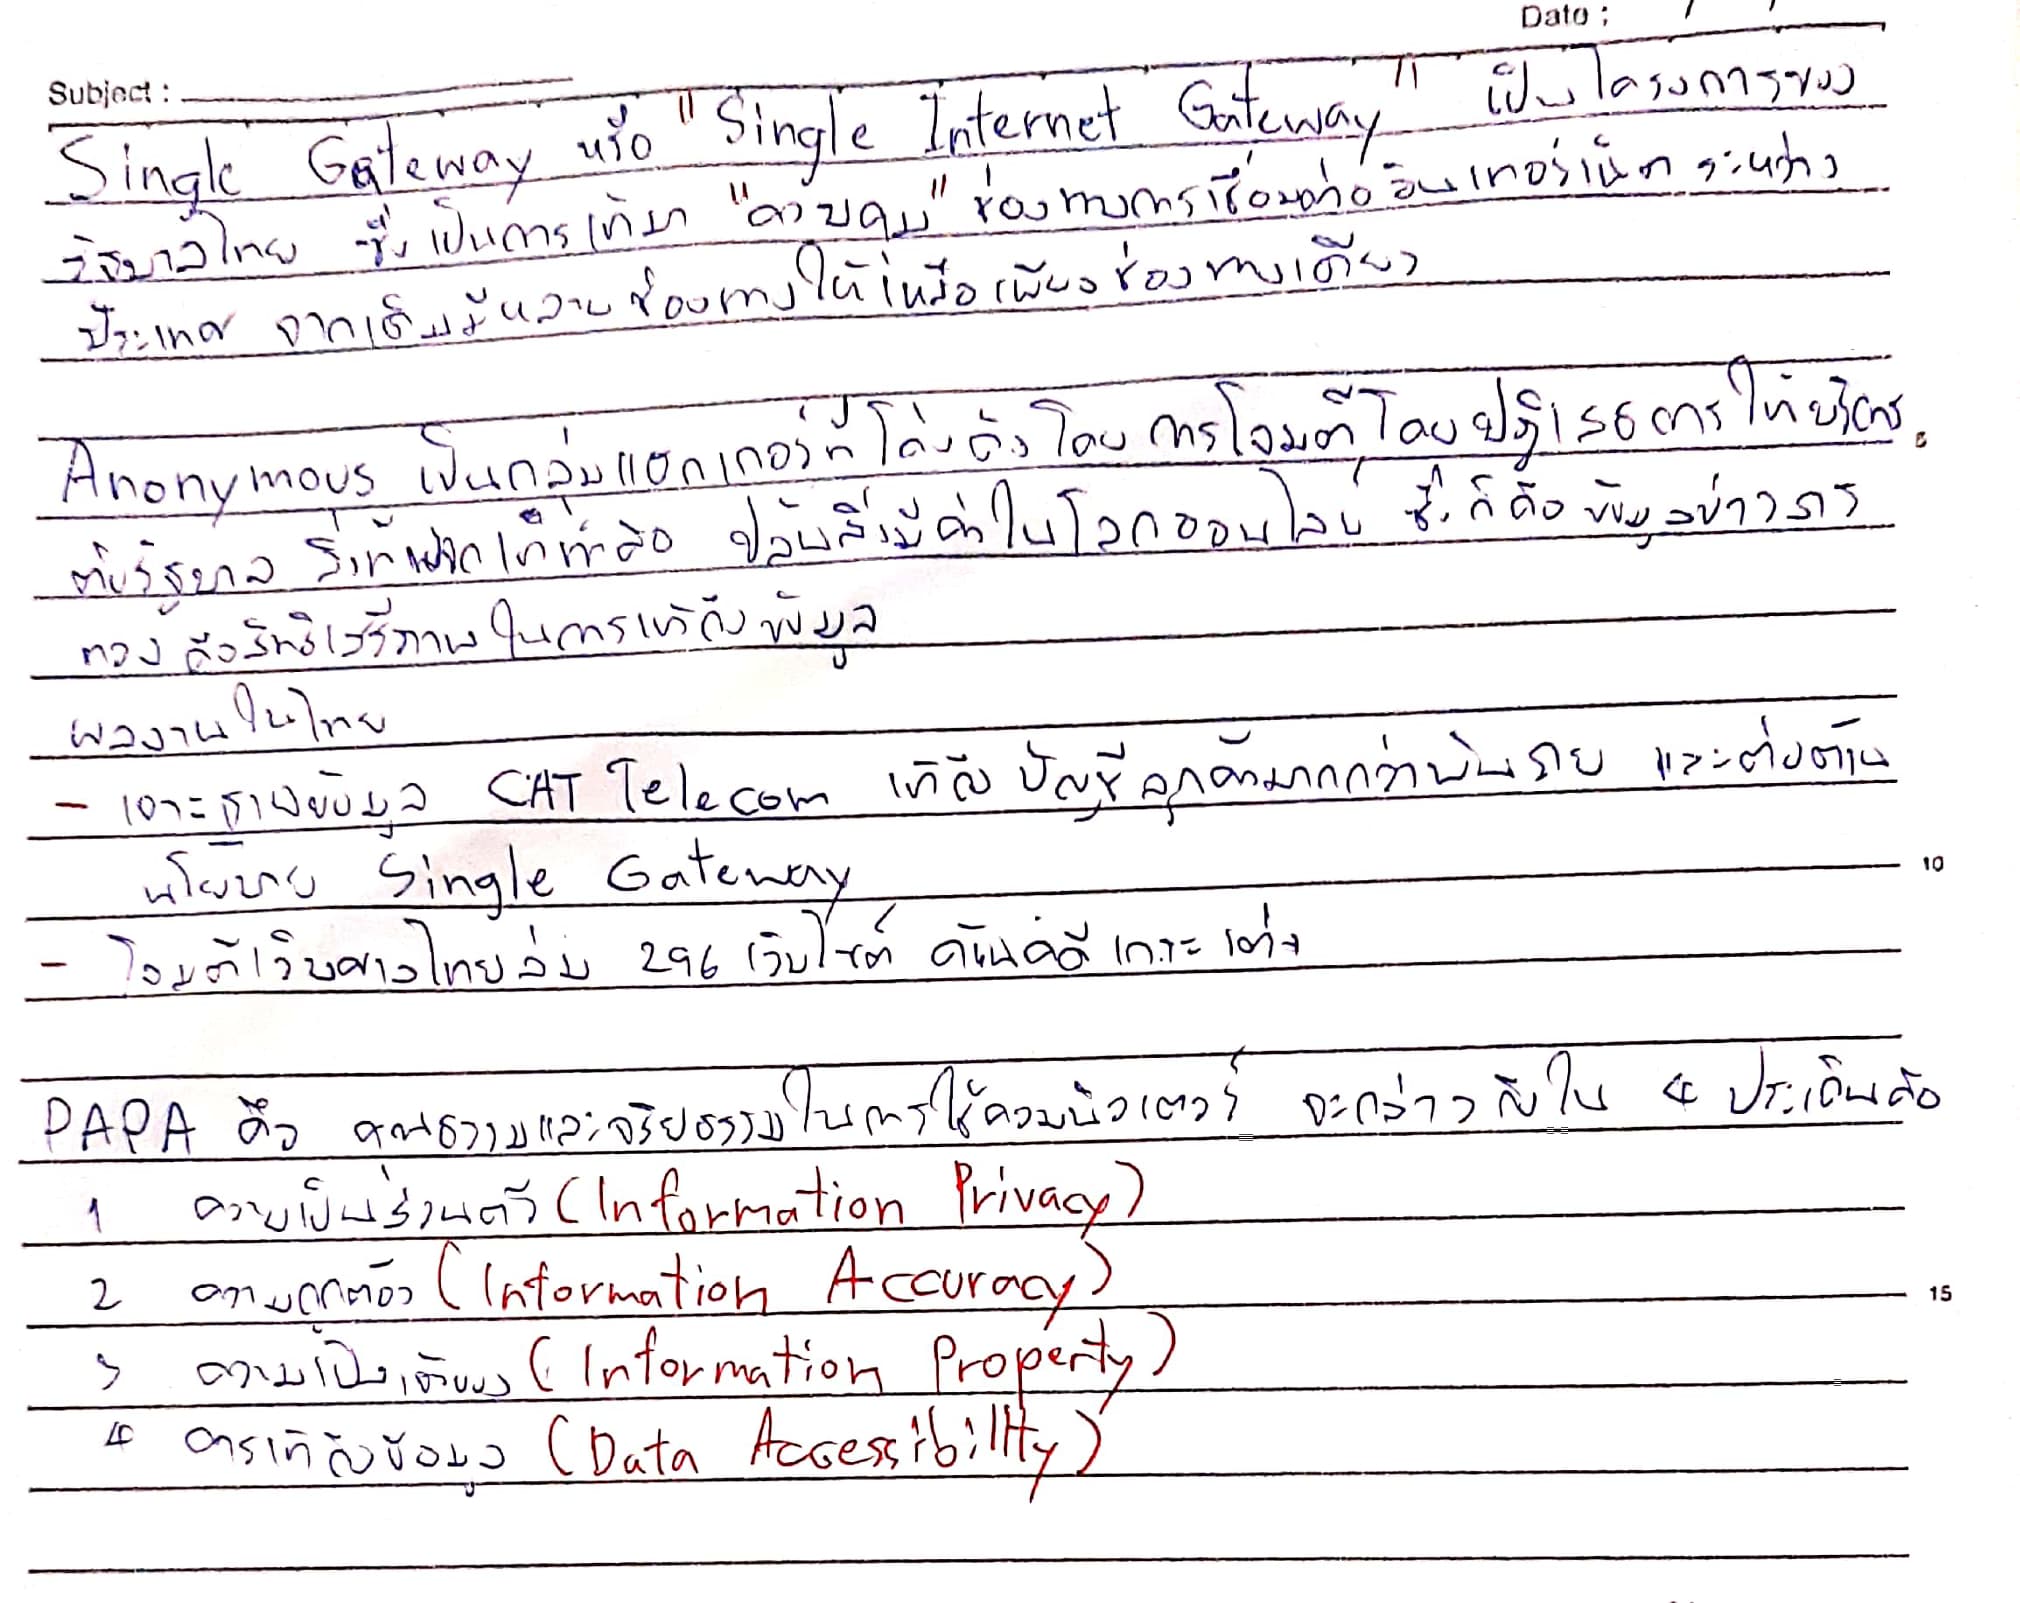 Date :
Subject :
Single Gateway หรือ "Single Internet Gateway" เป็นโครงการของ
รัฐบาลไทย ซึ่งเป็นการเข้ามา "ควบคุม" ช่องทางการเชื่อมต่ออินเทอร์เน็ตระหว่าง
ประเทศ จากเดิมมีหลายช่องทางให้เหลือเพียงช่องทางเดียว
Anonymous เป็นกลุ่มแฮกเกอร์ที่โด่งดังโดยการโจมตีโดยปฏิเสธการให้บริการ
5
ต้นรัฐบาล สิ่งที่แฮกเกอร์ทำคือ ปล้นสิ่งมีค่าในโลกออนไลน์ ซึ่งก็คือข้อมูลข่าวสาร
ทวงคืนสิทธิเสรีภาพในการเข้าถึงข้อมูล
ผลงานในไทย
- เจาะฐานข้อมูล CAT Telecom เข้าถึงบัญชีลูกค้ามากกว่าพันราย และต่อต้าน
นโยบาย Single Gateway
10
- โจมตีเว็บศาลไทยล่ม 296 เว็บไซต์ ค้านคดีเกาะเต่า
PAPA คือ คุณธรรมและจริยธรรมในการใช้คอมพิวเตอร์ จะกล่าวถึงใน 4 ประเด็นคือ
1 ความเป็นส่วนตัว (Information Privacy)
2 ความถูกต้อง (Information Accuracy)
15
3 ความเป็นเจ้าของ (Information Property)
4 การเข้าถึงข้อมูล (Data Accessibility)